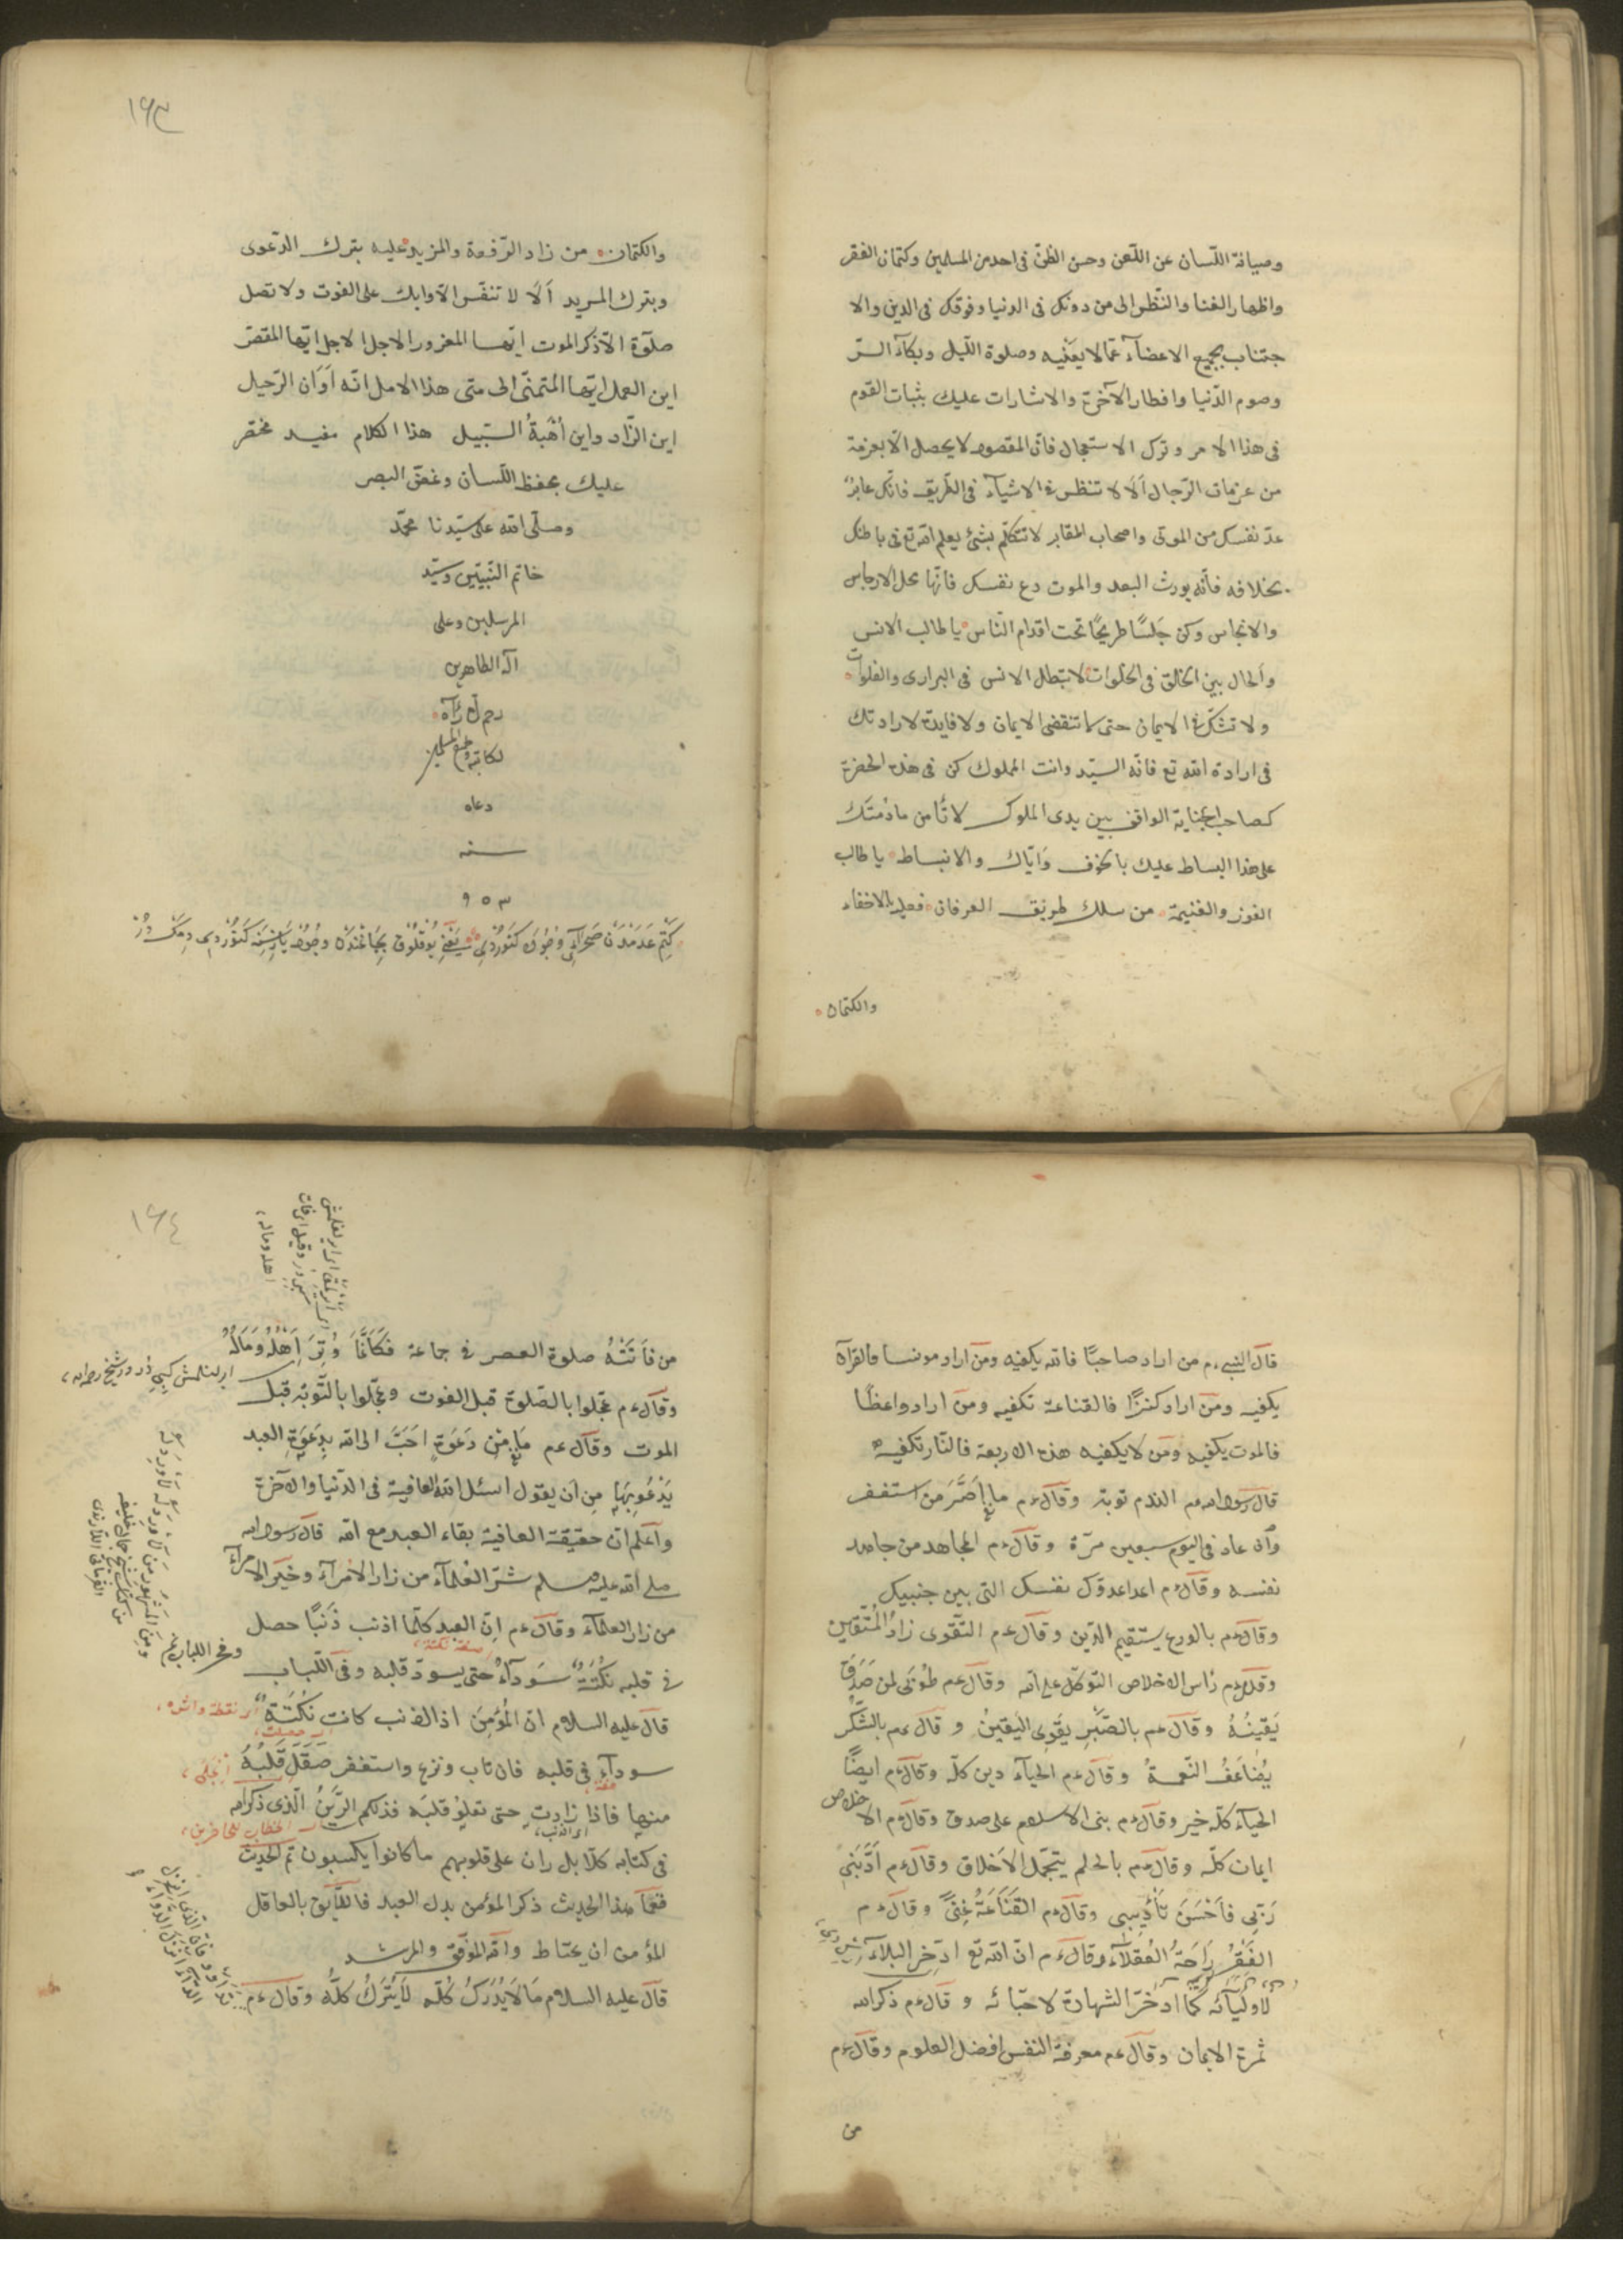 وصيانة اللسان عن اللعن وحسن الظن فى احد من المسلمين وكتمان الفقر
واظهار الغنا والنظر الى من دونك فى الدنيا وفوقك فى الدين والا
جتناب بجميع الاعضآء عمّا لا يعنيه وصلوة الليل وبكآء السرّ
وصوم الدّنيا وافطار الآخرة والاشارات عليك بثبات القوم
فى هذا الامر وترك الاستعجال فانّ المقصود لا يحصل الّا بعزمة
من عزمات الرّجال اَلَا لا تنظر فى الاشيآء فى الطّريق فانّك عابرٌ
عدّ نفسك من الموتى واصحاب المقابر لا تتكلّم بشئ يعلم الله تع فى باطنك
بخلافه فانّه يورث البعد والموت دع نفسك فانّها محل الارجاس
والانجاس وكن جَلسًا طريحًا تحت اقدام النّاس يا طالب الانس
والحال بين الخلق فى الخلوات لا تبطل الانس فى البرارى والفلوات
ولا تشكّ فى الايمان حتى ما تنقضى الايمان ولا فايدة لارادتك
فى ارادة الله تع فانّه السيّد وانت المملوك كن فى هذه الحضرة
كصاحب الجناية الواقف بين يدى الملوك لا تأمن ما دمتَ
على هذا البساط عليك بالخوف وايّاك والانبساط يا طالب
الفوز والغنيمة من سلك طريق العرفان فعليه بالاخفاء
والكتمان
١٦٣
والكتمان من زاد الرّفعة والمزيد عليه بترك الدّعوى
وبترك المريد اَلَا لا تنفّس الّا وابك على الفوت ولا تصل
صلوة الّا ذكر الموت ايّها المغرور الاجل الاجل ايّها المقصّر
اين العمل ايّها المتمنّى الى متى هذا الامل انّه اَوَان الرّحيل
اين الزّاد واين اُهْبَةُ السّبيل هذا الكلام مفيد مختصر
عليك بحفظ اللّسان وغضّ البصر
وصلّى الله على سيّدنا محمّد
خاتم النّبيّين وسيّد
المرسلين وعلى
آله الطاهرين
رحم الله لمن قرآه
لكاتبه ولجميع المسلمين
دعاه
سنه
٩٥٣
قال النبى ءم من اراد صاحبًا فالله يكفيه ومن اراد مونسا فالقرآن
يكفيه ومن اراد كنزًا فالقناعة تكفيه ومن اراد واعظًا
فالموت يكفيه ومن لا يكفيه هذه الاربعة فالنّار تكفيه
قال رسول الله ءم الندم توبة وقال ءم ما اصَرَّ من استغفر
وان عاد فى اليوم سبعين مرّة وقال ءم المجاهد من جاهد
نفسه وقال ءم اعدا عدوّك نفسك التى بين جنبيك
وقال ءم بالورع يستقيم الدّين وقال ءم التّقوى زادُ المُتّقين
وقال ءم رأس الاخلاص التوكّل على الله وقال ءم طوبَى لمن صَدَقَ
يَقينُهُ وقال ءم بالصّبرِ يقوى اليَقينُ وقال ءم بالشّكر
يُضاعَفُ النّعمةُ وقال ءم الحيآء دين كلّه وقال ءم ايضًا
الحيآء كلّه خير وقال ءم بنى الاسلام على صدق وقال ءم الاخلاص
ايمان كلّه وقال ءم بالحلم يتجمّل الاَخلاق وقال ءم اَدَّبَنى
رَبّى فَاَحْسَنَ تَأديبى وقال ءم القَنَاعَةُ غِنًى وقال ءم
الفَقْرُ رَاحَةُ العُقلآء وقال ءم انّ الله تع ادّخر البلآء
لاَوليآئه كما ادّخر الشهادة لاحبّائه وقال ءم ذكر الله
ثمرة الايمان وقال ءم معرفة النفس افضل العلوم وقال ءم
من
١٦٤
من فَاتَتْهُ صلوة العصر فى جماعة فكَانّمَا وُتِرَ اَهْلُهُ وَمَالُهُ
وقال ءم عجّلوا بالصّلوة قبل الفوت وعجّلوا بالتّوبة قبل
الموت وقال ءم مَا من دَعَوةٍ احَبَّ الى الله بدعَوَةِ العبد
يَدْعُو بِهَا مِن اَن يقول اسئل الله العافية فى الدّنيا والآخرة
واعلم انّ حقيقة العافية بقاء العبد مع الله قال رسول الله
صلى الله عليه وسلم شرّ العلمآء من زار الامرآء وخير الامرآء
من زار العلمآء وقال ءم اِنّ العبد كلّما اذنب ذَنبًا حصل
فى قلبه نُكتَةٌ سَودآءُ حتى يسودّ قلبه وفى اللّباب
قال عليه السلام انّ المُؤمِنَ اذا اذنب كانت نُكْتَةٌ
سودآء فى قلبه فان تاب ونزع واستغفر صَقَلَ قَلبُهُ
منها فاذا زادت حتى تعلوَ قلبَه فذلكم الرَّينُ الّذى ذكر الله
فى كتابه كلّا بل ران على قلوبهم ما كانوا يكسبون تم الحديث
فعُمّا هذا الحديث ذكر المؤمن بدل العبد فاللّايق بالعاقل
المؤمن ان يحتاط والله الموفّق والمرشد
قال عليه السلام مَا لَا يُدْرَكُ كُلّه لَا يُتْرَكُ كلّه وقال ءم